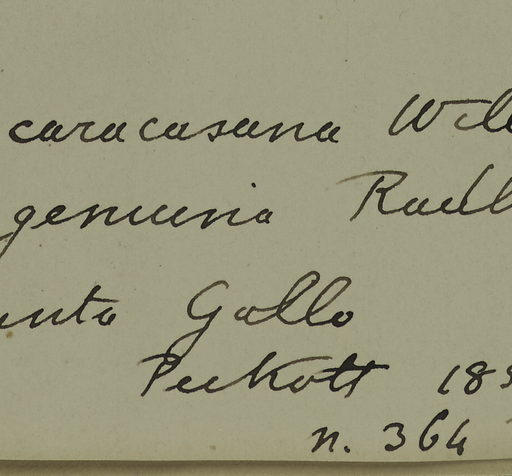 caracasana Wil
genuina Radl
unto Gallo
Peckott 189
n. 364